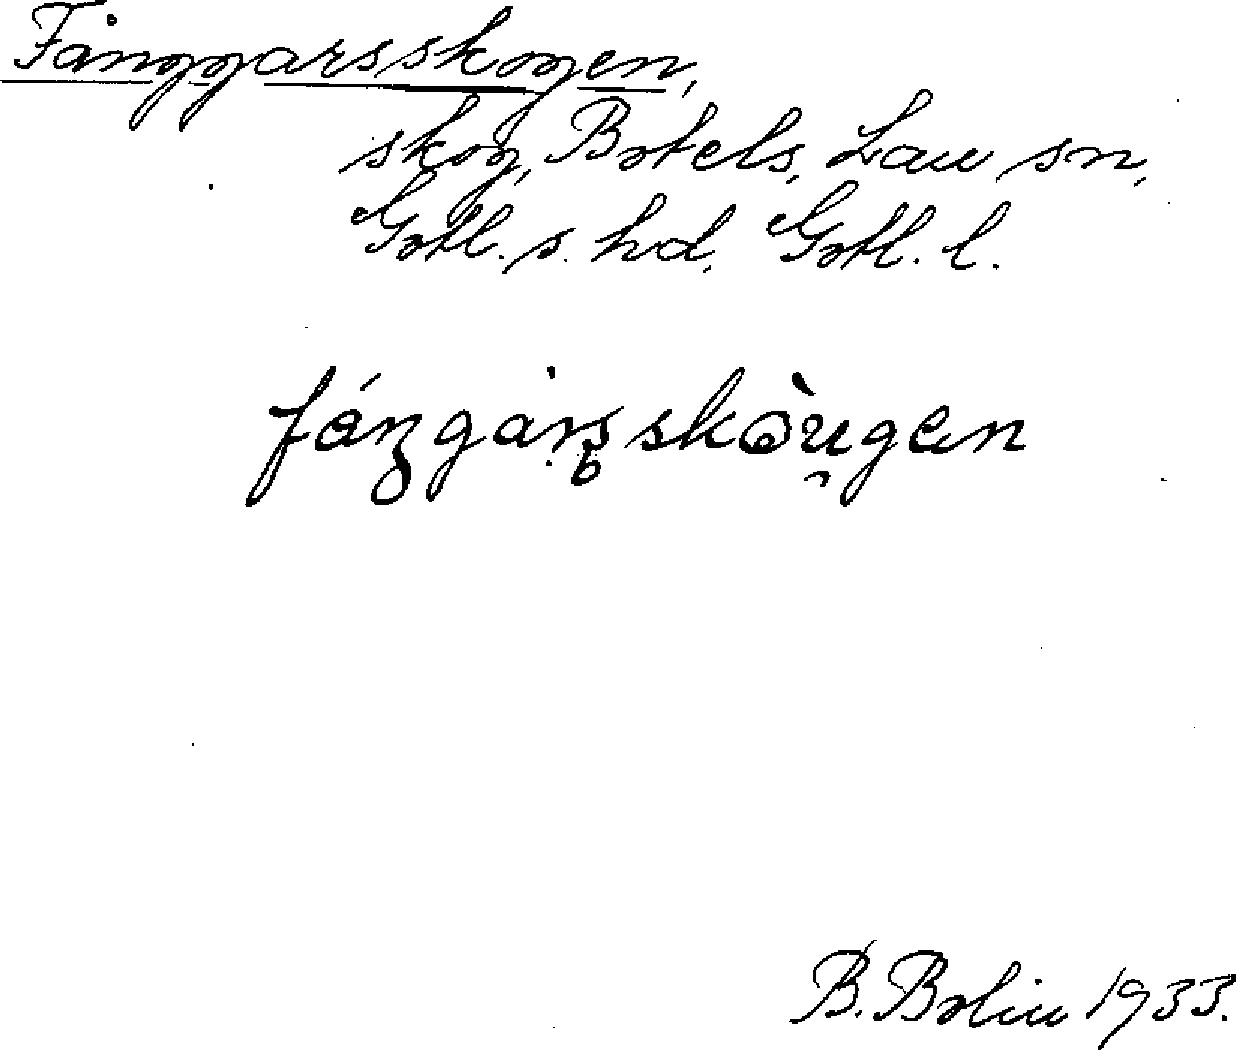 Fånggarsskogen,
skog, Botels, Lau sn,
Gotl. s. hd, Gotl. l.
B. Bolin 1933.